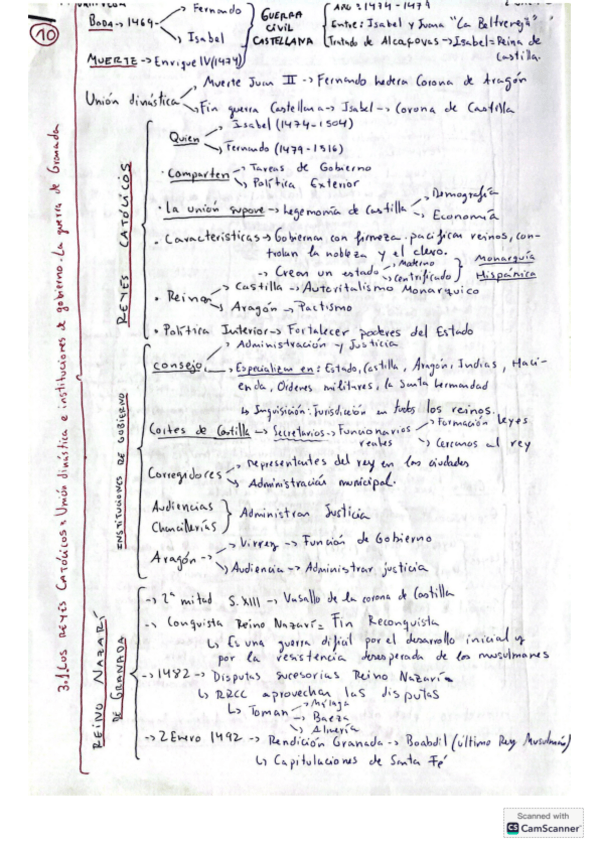 10
3.1 LOS REYES CATÓLICOS: Unión dinástica e instituciones de gobierno. La guerra de Granada
BODA -> 1469
-> Fernando
-> Isabel
GUERRA CIVIL CASTELLANA
AÑO: 1474-1479
Entre: Isabel y Juana "La Beltraneja"
Tratado de Alcaçovas -> Isabel = Reina de Castilla.
MUERTE -> Enrique IV (1474)
Unión dinástica
-> Muerte Juan II -> Fernando hedera Corona de Aragón
-> Fin guerra Castellana -> Isabel -> Corona de Castilla
REYES CATÓLICOS
Quien
-> Isabel (1474-1504)
-> Fernando (1479-1516)
· Comparten
-> Tareas de Gobierno
-> Política Exterior
· La unión supove -> hegemonía de Castilla
-> Demografía
-> Economía
· Características -> Gobiernan con firmeza. pacifican reinos, con-
trolan la nobleza y el clero.
-> Crean un estado
-> Moderno
-> Centrificado
Monarquía Hispánica
· Reinan
-> Castilla -> Autoritalismo Monarquico
-> Aragón -> Pactismo
· Política Interior -> Fortalecer poderes del Estado
INSTITUCIONES DE GOBIERNO
Consejo
-> Administración y Justicia
-> Especializan en: Estado, Castilla, Aragón, Indias, Haci-
enda, Ordenes militares, la Santa hermandad
↳ Inquisición: Jurisdicción en todos los reinos.
Cortes de Castilla -> Secretarios -> Funcionarios reales
-> Formación leyes
-> Cercanos al rey
Corregidores
-> Representantes del rey en las ciudades
-> Administración municipal.
Audiencias
Chancillerías
Administran Justicia
Aragón
-> Virrey -> Función de Gobierno
-> Audiencia -> Administrar justicia
REINO NAZARÍ DE GRANADA
-> 2ª mitad S. XIII -> Vasallo de la corona de Castilla
-> Conquista Reino Nazarí = Fin Reconquista
↳ Es una guerra difícil por el desarrollo inicial y
por la resistencia desesperada de los musulmanes
-> 1482 -> Disputas sucesorias Reino Nazarí
↳ RRCC aprovechan las disputas
↳ Toman
-> Málaga
-> Baeza
-> Almería
-> 2 Enero 1492 -> Rendición Granada -> Boabdil (último Rey Musulmán)
↳ Capitulaciones de Santa Fé
Scanned with
CS CamScanner